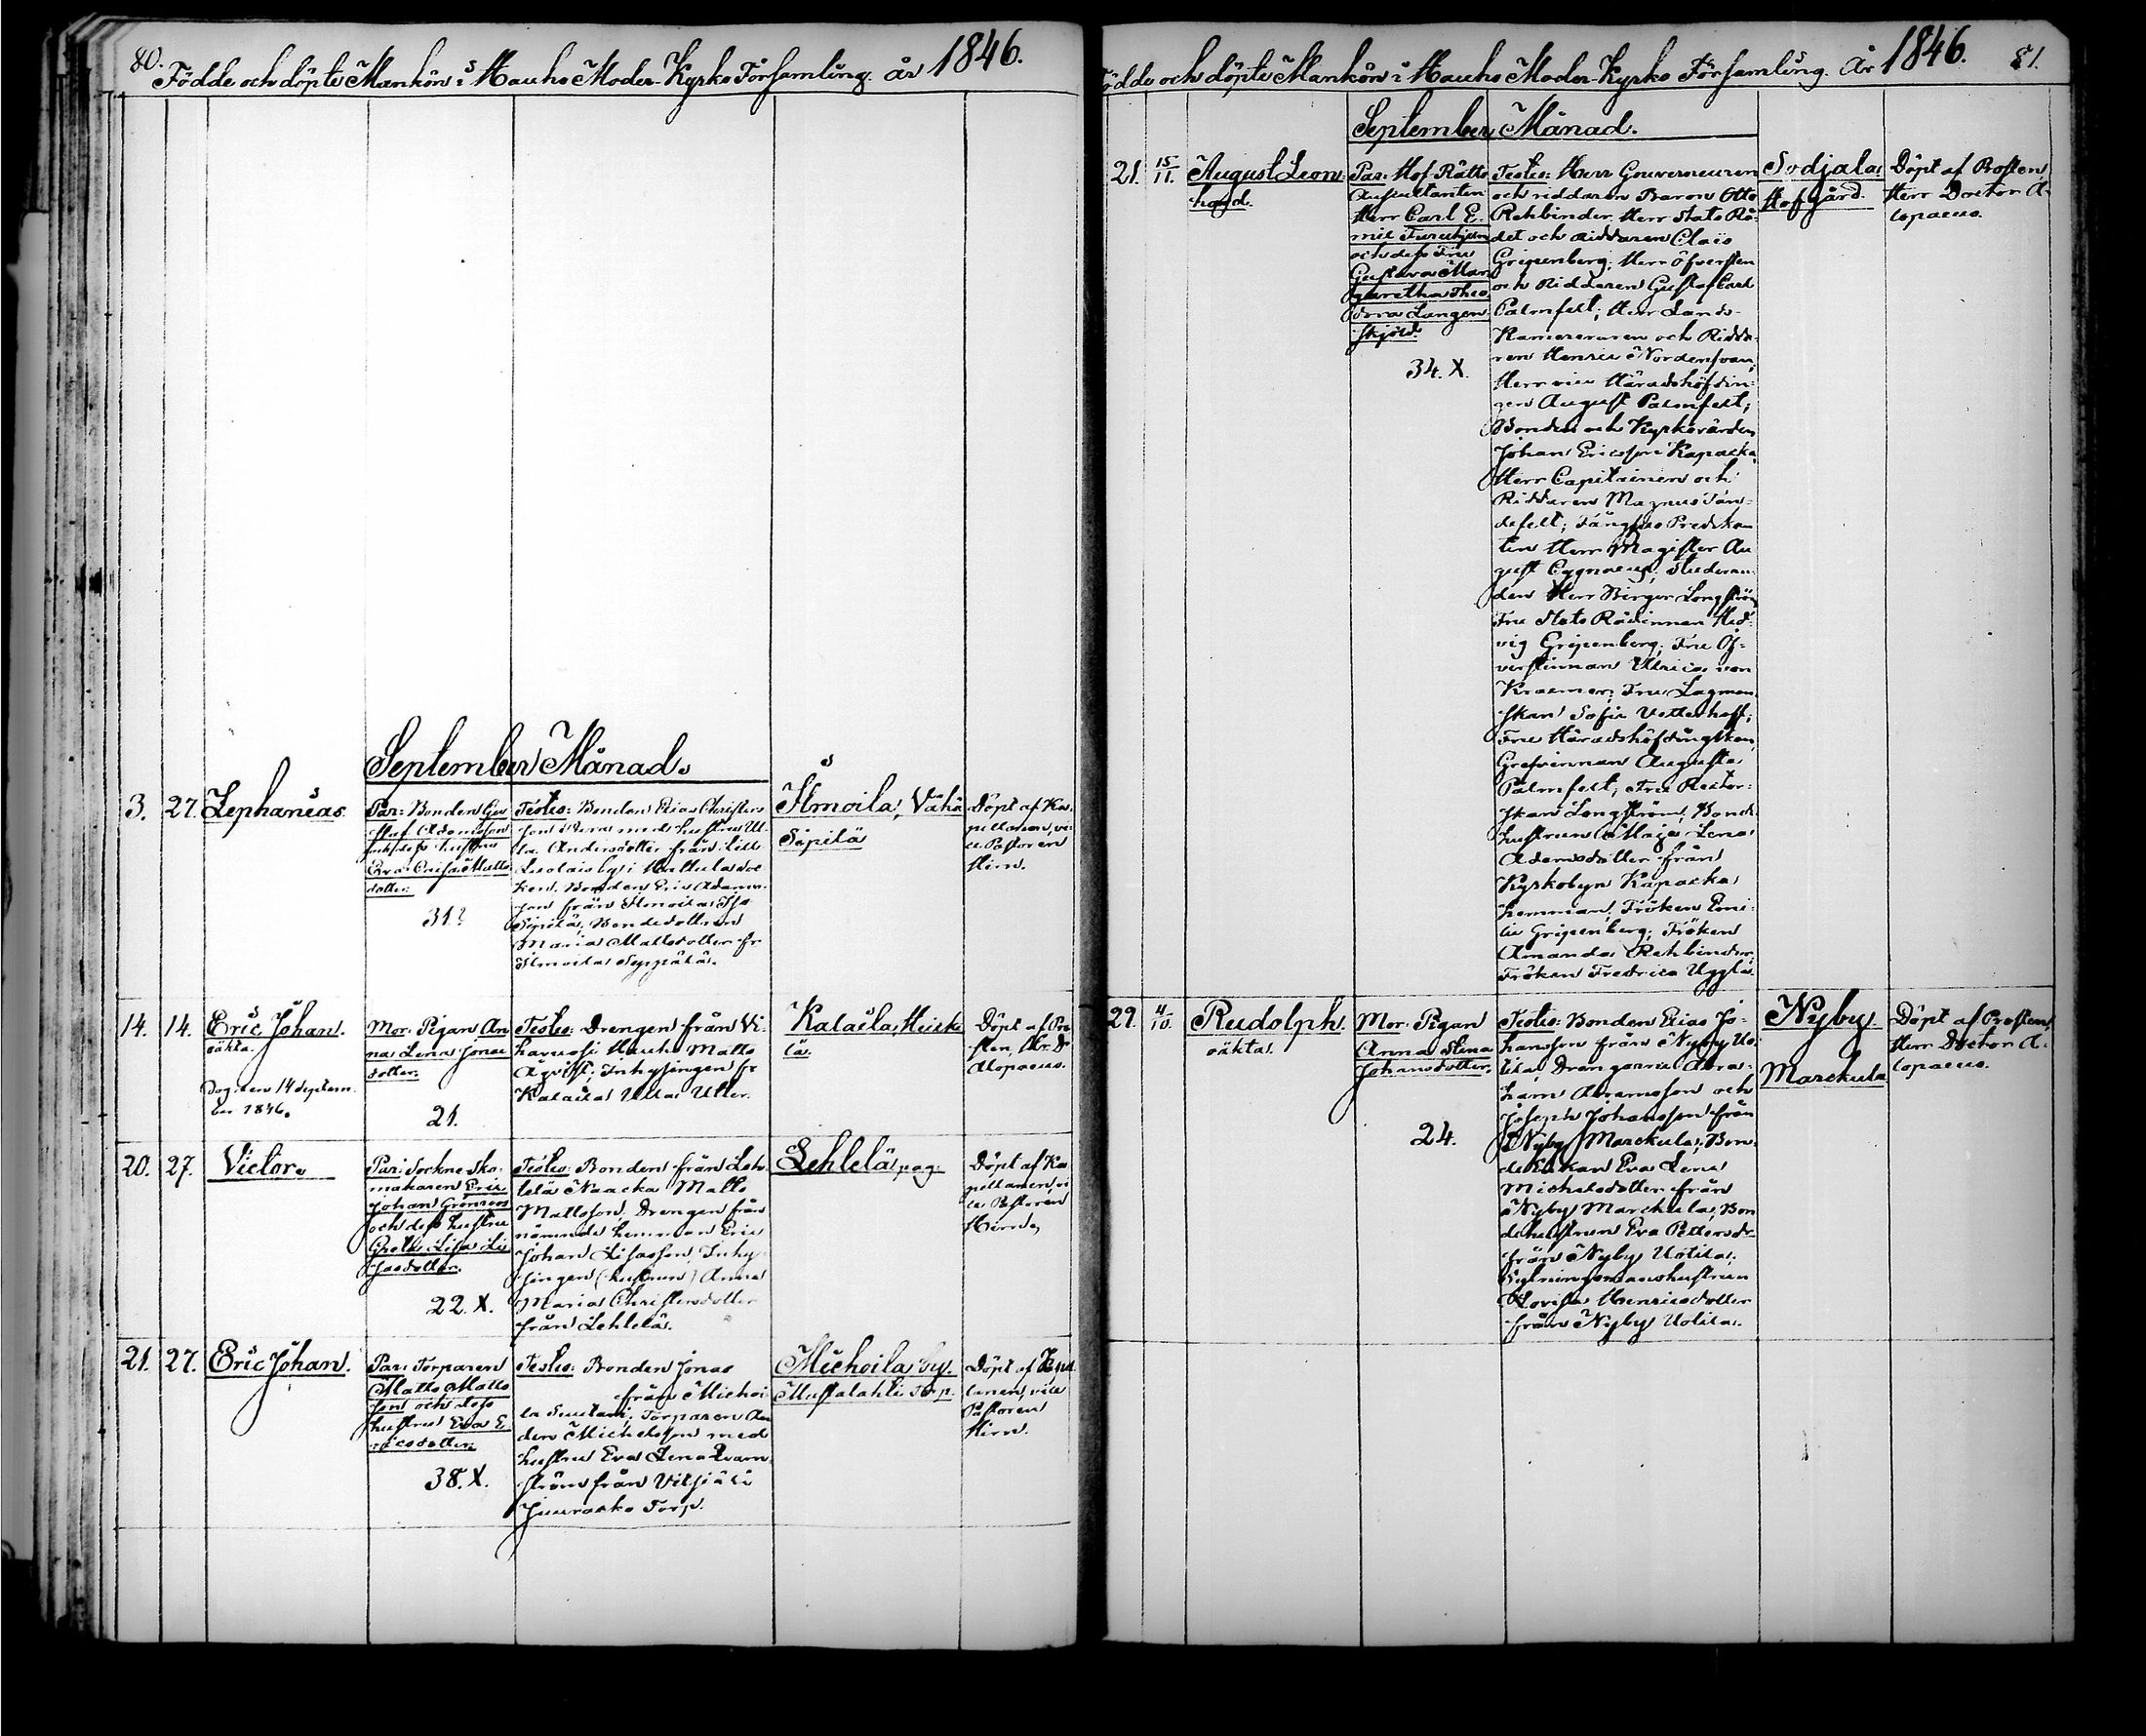 80.
Födde och döpte Mankön i Hauho Moder-Kyrko Församling. år 1846.
September Månad.
3. 27. Zephanias.
Par: Bonden Gu
staf Adamsson
och dess hustru
Eva Matts
dotter.
31?
Testes: Bonden Elias Christers
son med hustru Ul
la Andersdotter från
by i Hattula Soc
ken, Bonden Eric Adams
son från Ilmoila
Sipilä, Bondedottren
Maria Mattsdotter fr
Ilmoila
Ilmoila, Vähä
Sipilä
Döpt af Ka
pellanen, vi
ce Pastoren
Hirn.
14. 14. Eric Johan.
oäkta.
Dog den 14 Septem
ber 1846.
Mor: Pigan An
na Lena Jonae
dotter.
21.
Testes: Drengen från Vi
havuosi Hauho Matts
Agvist; Inhysingen fr
Kalaila Ulla
Kalaila, Heick
lä.
Döpt af Pro
sten, Hr. Dr
Alopaeus.
20. 27. Victor.
Par: Sockne Sko
makaren Eric
Johan Grönroos
och dess hustru
Greta Lisa
dotter.
22. X.
Testes: Bonden från Leh
telä Naacka Matts
Mattsson. Drengen från
nämnde hemman Eric
Johan Inhy
singen (hustrun) Anna
Maria Christersdotter
från Lehtelä.
Lehtelä pag.
Döpt af Ka
pellanen, vi
ce Pastoren
Hirn.
21. 27. Eric Johan.
Par: Torparen
Matts Matts
son och dess
hustru Eva E
ricsdotter.
38. X.
Testes: Bonden Jonas
från Michoi
la Torparen An
ders Michelsson med
hustru Eva Lena Qvarn
ström från
Torp.
Michoila by.
Mustalahti Torp.
Döpt af Kapel
lanen, vice
Pastoren
Hirn.
Födde och döpte Mankön i Hauho Moder-Kyrko Församling. År 1846. 81.
September Månad.
21. 15/11. August Leon
hard.
Par: Hof Rätts
Auscultanten
Herr Carl E
mil Furuhjelm
och dess Fru
Gustava Mar
garetha Theo
dora Langen
skjöld.
34. X.
Testes: Herr Gouverneuren
och riddaren Baron Otto
Rehbinder. Herr Stats Rå
det och Riddaren Claës
Gripenberg; Herr Öfversten
och Riddaren Gustaf Carl
Palmfelt; Herr Lands
Kamereraren och Ridda
ren Henric Nordensvan,
Herr vice Häradshöfdin
gen August Palmfelt;
Bonden och Kyrkovärden
Johan Ericsson Kapacka
Herr Capitainen och
Riddaren Magnus Tan
defelt; Fängelse Predikan
ten Herr Magister Au
gust Cygnaeus; Studeran
den Herr Birger Longström
Fru Stats Rådinnan Hed
vig Gripenberg; Fru Öf
verstinnan Ulrica von
Kraemer; Fru Lagman
skan Sofia Vetterhoff;
Fru Häradshöfdingskan,
Grefvinnan Augusta
Palmfelt; Fru Rector
skan Longström; Bonde
hustrun Maja Lena
Adamsdotter från
Kyrkobyn Kapacka
hemman; Fröken Emi
lie Gripenberg; Fröken
Amanda Rehbinder,
Fröken Fredrica Uggla.
Sodjala
Hofgård.
Döpt af Prosten,
Herr Doctor A
lopaeus.
29. 4/10. Rudolph.
oäkta.
Mor: Pigan
Anna Stina
Johansdotter.
24.
Testes: Bonden Elias Jo
hansson från Nyby Uo
tila, Drengarne Abra
ham Abramsson och
Joseph Johansson från
Nyby Marckula, Bon
de Enkan Eva Lena
Michelsdotter från
Nyby Marckula, Bon
dehustrun Eva Pettersdr
från Nyby Uotila;
Sytningsmanshustrun
Lovisa Henricsdotter
från Nyby Uotila.
Nyby
Marckula
Döpt af Prosten,
Herr Doctor A
lopaeus.